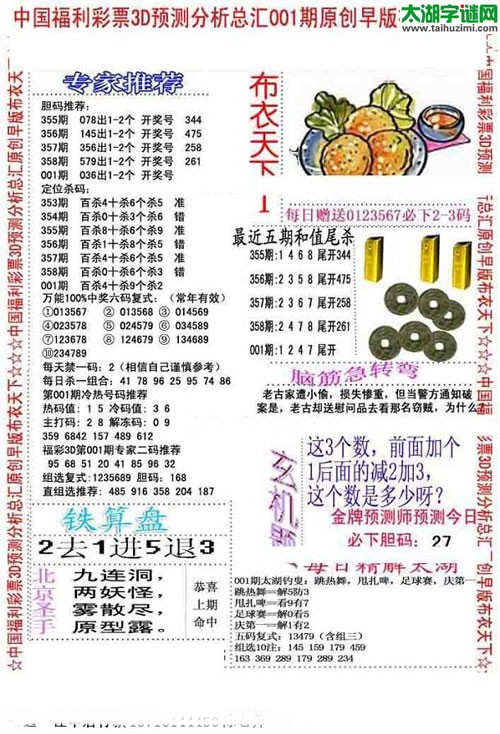 太湖字谜网
www.taihuzimi.com
中国福利彩票3D预测分析总汇001期原创早版
专家推荐
胆码推荐：
355期 078出1-2个 开奖号 344
356期 145出1-2个 开奖号 475
357期 356出1-2个 开奖号 258
358期 579出1-2个 开奖号 261
001期 036出1-2个 开奖号
定位杀码：
353期 百杀4十杀6个杀5 准
354期 百杀0十杀3个杀6 错
355期 百杀4十杀6个杀5 准
356期 百杀1十杀8个杀5 准
357期 百杀4十杀5个杀6 错
358期 百杀0十杀6个杀3 错
001期 百杀4十杀9个杀2
万能100%中奖六码复式：（常年有效）
①013567 ②013568 ③014569
④023578 ⑤024579 ⑥034589
⑦123678 ⑧124679 ⑨134689
⑩234789
每天禁一码：2（相信自己谨慎参考）
每日杀一组合：41 78 96 25 95 74 86
第001期冷热号码推荐
热码值：1 5 冷码值：3 6
主打码：2 8 解冻码：0 9
359 6842 157 489 612
福彩3D第001期专家二码推荐
95 68 51 20 41 85 96 32
组选复式：1235689 胆码：168
直组选推荐：485 916 358 204 187
铁算盘
2去1进5退3
北京圣手
九连洞，
两妖怪，
雾散尽，
原型露。
恭喜
上期
命中
布衣天下
每日赠送0123567必下2-3码
最近五期和值尾杀
355期:1 4 6 8 尾开344
356期:2 3 5 8 尾开475
357期:2 3 6 7 尾开258
358期:2 4 7 8 尾开261
001期:1 2 4 7 尾开
脑筋急转弯
老古家遭小偷，损失惨重，但当警方通知破
案是，老古却送慰问品去看那名窃贼，为什么
玄机
这3个数，前面加个
1后面的减2加3，
这个数是多少呀？
金牌预测师预测今日
必下胆码： 27
每日精解太湖
001期太湖钓叟：跳热舞，甩扎啤，足球赛，庆第一
跳热舞==解5防3
甩扎啤==看9有7
足球赛==解0看5
庆第一==解1有2
五码复式：13479（含组三）
组选10注：145 159 179 459
163 369 289 179 289 234
☆中国福利彩票3D预测分析总汇原创早版布衣天下☆☆☆中国福利彩票3D预测分析总汇原创早版布衣天下